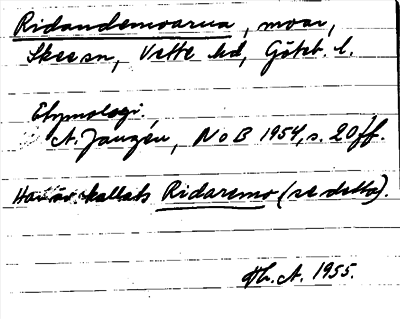 Ridandemoarna, moar,
Skee sn, Vette hd, Göteb. l.
Etymologi.
A. Janzén, NoB 1954, s. 20 ff.
Har äv. kallats Ridaremo (se detta).
Th. A. 1955.